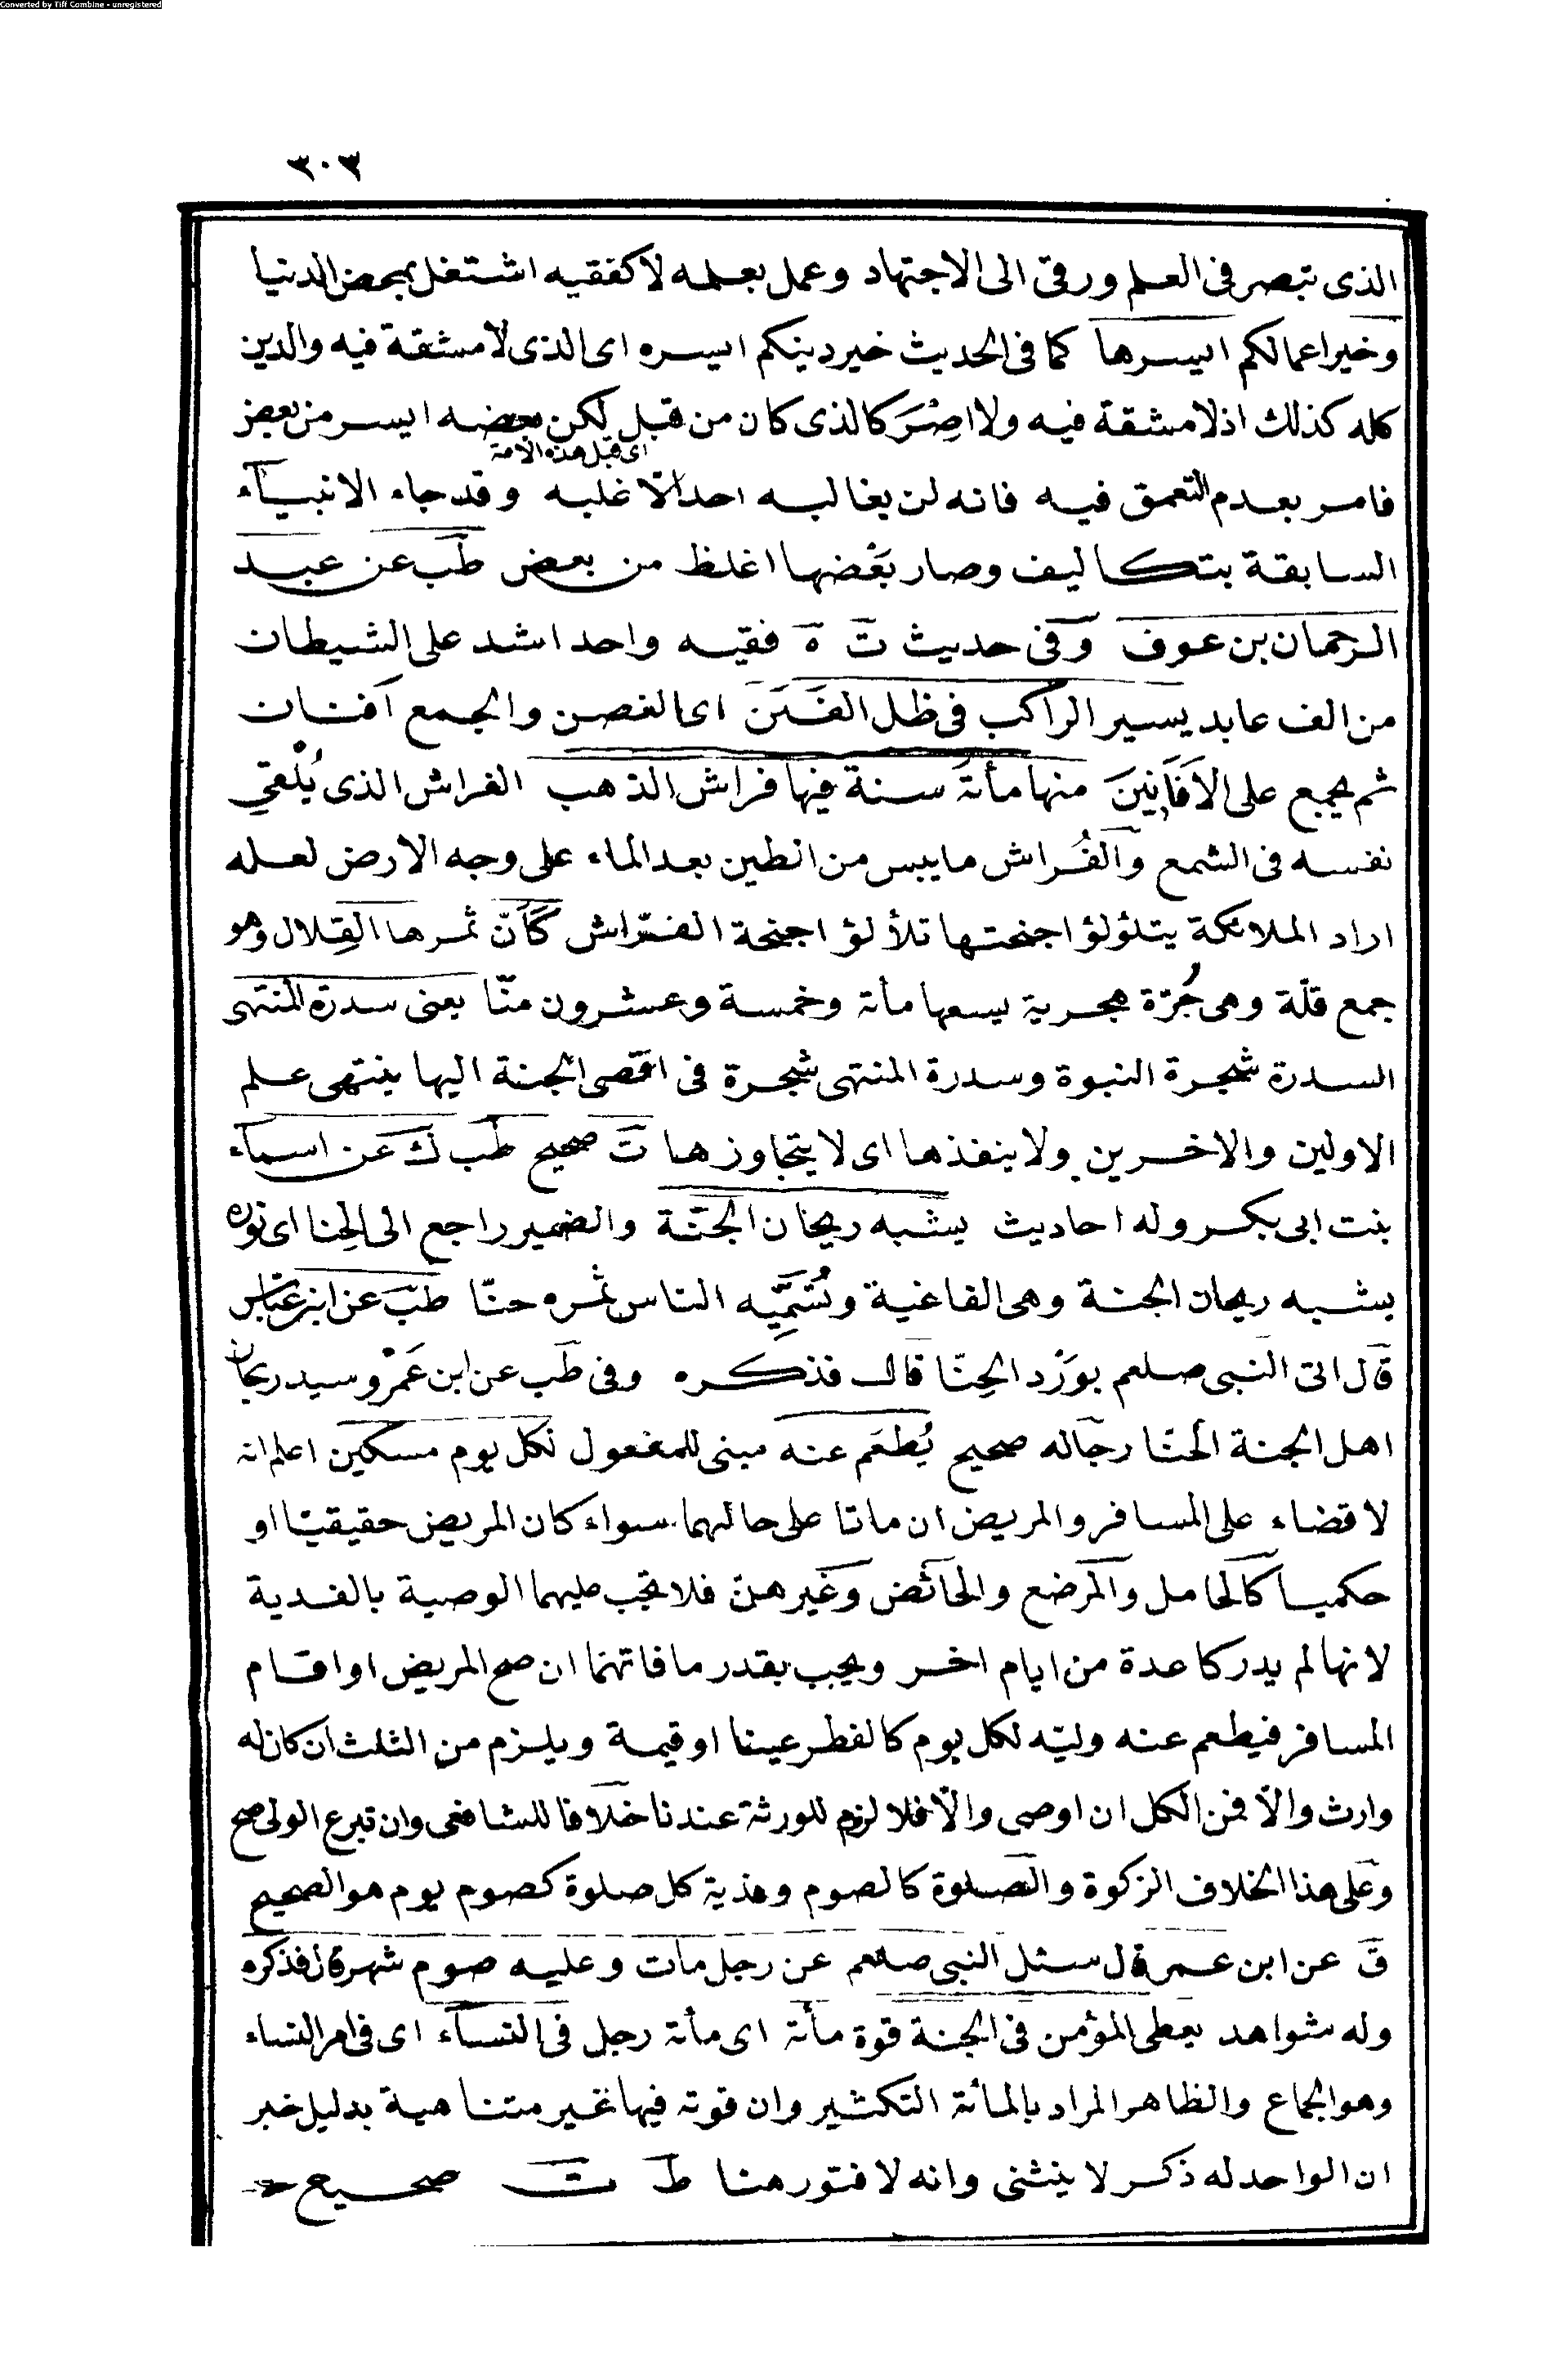 Converted by Tiff Combine - unregistered
٣٠٣
الذى تبصر فى العلم ورقى الى الاجتهاد وعمل بعلمه لا كفقيه اشتغل بمحض الدنيا
وخير اعمالكم ايسرها كما فى الحديث خير دينكم ايسره اى الذى لا مشقة فيه والدين
كله كذلك اذ لا مشقة فيه ولا اِصْرَ كالذى كان من قبل لكن بعضه ايسر من بعض
اى قبل هذه الامة
فامر بعدم التعمق فيه فانه لن يغالبه احد الّا غلبه وقد جاء الانبيآء
السابقة بتكاليف وصار بَعْضها اغلظ من بعض طب عن عبد
الرحمان بن عوف وفى حديث ت ه فقيه واحد اشد على الشيطان
من الف عابد يسير الراكب فى ظل الفَنَن اى الغصن والجمع افنان
ثم يجمع على الاَفَانِينَ منها مأة سنة فيها فراش الذهب الفراش الذى يُلْقي
نفسه فى الشمع والفُراش ما يبس من الطين بعد الماء على وجه الارض لعله
اراد الملائكة يتلؤلؤ اجنحتها تلألؤ اجنحة الفراش كَأَنّ ثمرها القِلال وهو
جمع قلّة وهى جُرّة هجرية يسعها مأة وخمسة وعشرون منّا يعنى سدرة المنتهى
السدرة شجرة النبوة وسدرة المنتهى شجرة فى اقصى الجنة اليها ينتهى علم
الاولين والاخرين ولا ينفذها اى لا يتجاوزها ت صحيح طب ك عن اسمآء
بنت ابى بكر وله احاديث يشبه ريحان الجنّة والضمير راجع الى الحِنا اى نوره
يشبه ريحان الجنة وهى الفاغية وتُسَمِّيه الناس ثمره حنّا طب عن ابن عباس
قال اتى النبى صلعم بوَرْد الحِنّا قال فذكره وفى طب عن ابن عَمْرو سيد ريحان
اهل الجنة الحنّا رجاله صحيح يُطعَم عنه مبنى للمفعول لكل يوم مسكين اعلم انه
لا قضاء على المسافر والمريض ان ماتا على حالهما سواء كان المريض حقيقيّا او
حكميا كالحامل والمرضع والحائض وغيرهنّ فلا تجب عليهما الوصية بالفدية
لانهما لم يدركا عدة من ايام اخر ويجب بقدر ما فاتهما ان صح المريض او اقام
المسافر فيطعم عنه وليّه لكل يوم كالفطر عينا او قيمة ويلزم من الثلث ان كان له
وارث والّا فمن الكل ان اوصى والّا فلا لزوم للورثة عندنا خلافا للشافعى وان تبرع الولى صح
وعلى هذا الخلاف الزكوة والصلوة كالصوم وفدية كل صلوة كصوم يوم هو الصحيح
ق عن ابن عمر قال سئل النبى صلعم عن رجل مات وعليه صوم شهر قال فذكره
وله شواهد يعطى المؤمن فى الجنة قوة مأة اى مأة رجل فى النسآء اى فى امر النساء
وهو الجماع والظاهر المراد بالمائة التكثير وان قوته فيها غير متناهية بدليل خبر
ان الواحد له ذكر لا ينثنى وانه لا فتور هنا ط ت صحيح